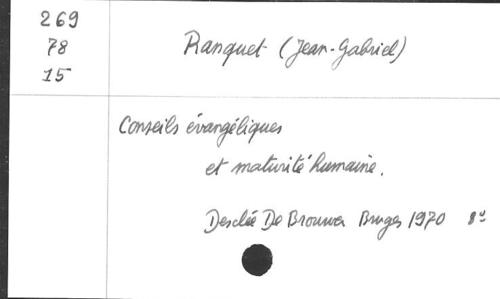 269
78
15
Ranquet (Jean-Gabriel)
Conseils évangéliques
et maturité humaine.
Desclée De Brouwer Bruges 1970 8°